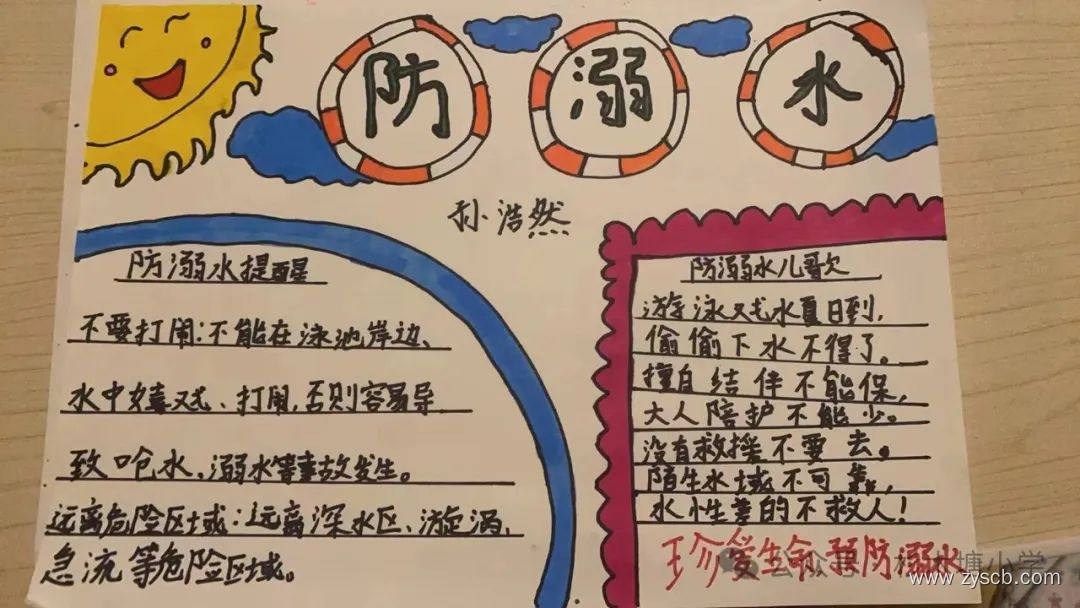 防溺水
孙浩然
防溺水提醒
不要打闹:不能在泳池岸边、
水中嬉戏、打闹,否则容易导
致呛水、溺水等事故发生。
远离危险区域:远离深水区、漩涡、
急流等危险区域。
防溺水儿歌
游泳戏水夏日到,
偷偷下水不得了。
擅自结伴不能保,
大人陪护不能少。
没有救援不要去。
陌生水域不可靠,
水性差的不救人!
珍爱生命 预防溺水
www.zyscb.com